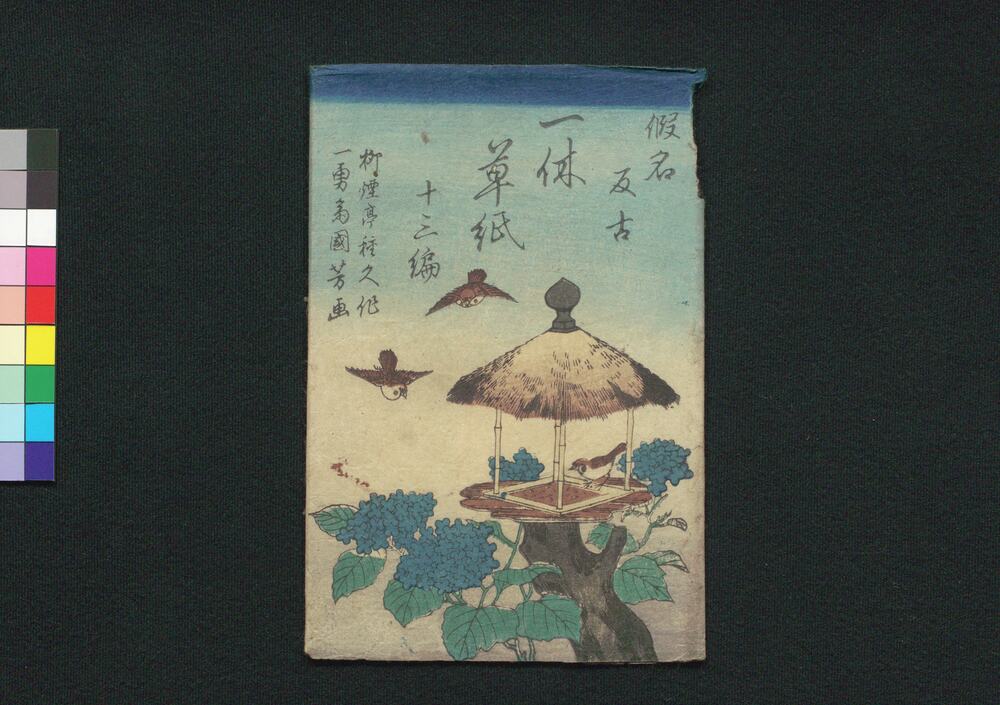 假名
反古
一休
草紙
十三編
柳煙亭種久作
一勇斎國芳画